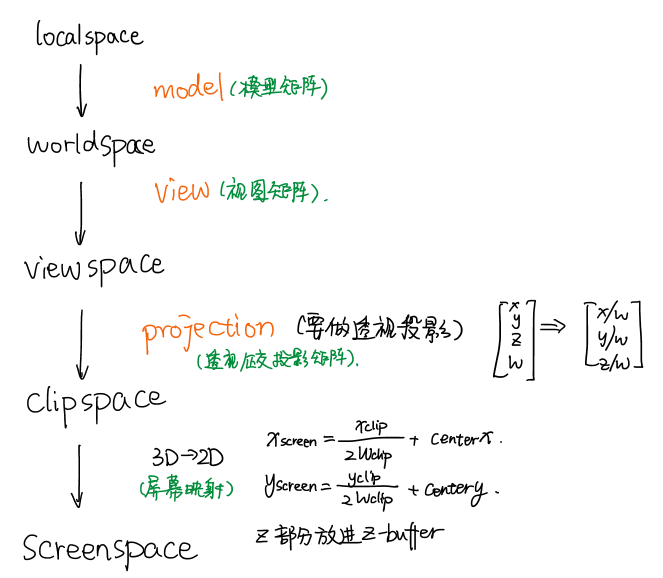 localspace
model (模型矩阵)
worldspace
view (视图矩阵).
viewspace
projection (要做透视投影)
(透视/正交投影矩阵).
[x y z w] ⇒ [x/w y/w z/w]
clipspace
3D→2D
(屏幕映射)
xscreen = xclip / 2Wclip + centerx.
yscreen = yclip / 2Wclip + centery.
z部分放进z-buffer
Screenspace